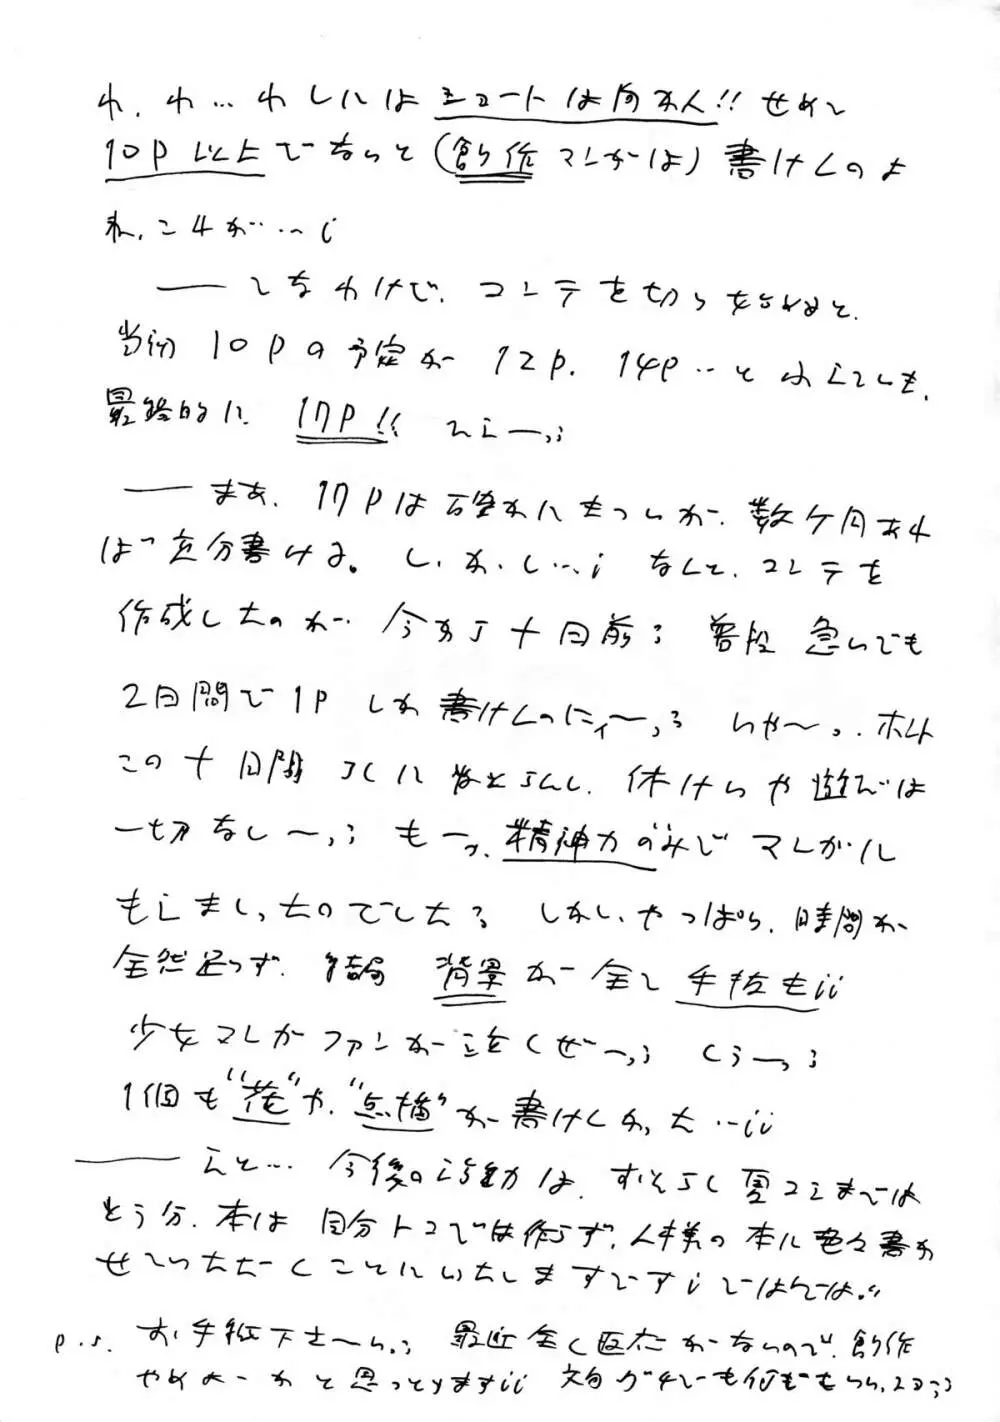 わ、わ…わしにはショートは向かん!! せめて
10P以上でないと(創作マンガは)書けんのよ
ね、これが…;
――てなわけで、コンテを切り始めると、
当初10Pの予定が12P、14P…と
最終的に、17P!!
――まあ、17Pは確かにきついが、数ヶ月あれ
ば充分書ける。しかし…; なんと、コンテを
作成したのが今から十日前; 普段急いでも
2日間で1Pしか書けんのにィ〜っ; いや〜っ、ホント
この十日間ろくに寝とらんし、休けいや遊びは
一切なし〜っ; もーっ、精神力のみでマンガに
しましたのでした; しかし、やっぱり、時間が
全然足らず、結局 背景が全て手抜き;;
少女マンガファンが泣くぜーっ; くぅーっ;
1個も“花”や“点描”が書けんかった…;;
――えと… 今後の活動は、おそらく夏コミまでは
とう分、本は自分トコでは作らず、人様の本に色々書か
せていただくことにいたしますです; ではでは。
P.S. お手紙下さ〜い; 最近全く反応がないので、創作
やめよーかと思っとります;; 文句グチでも何でもいい、